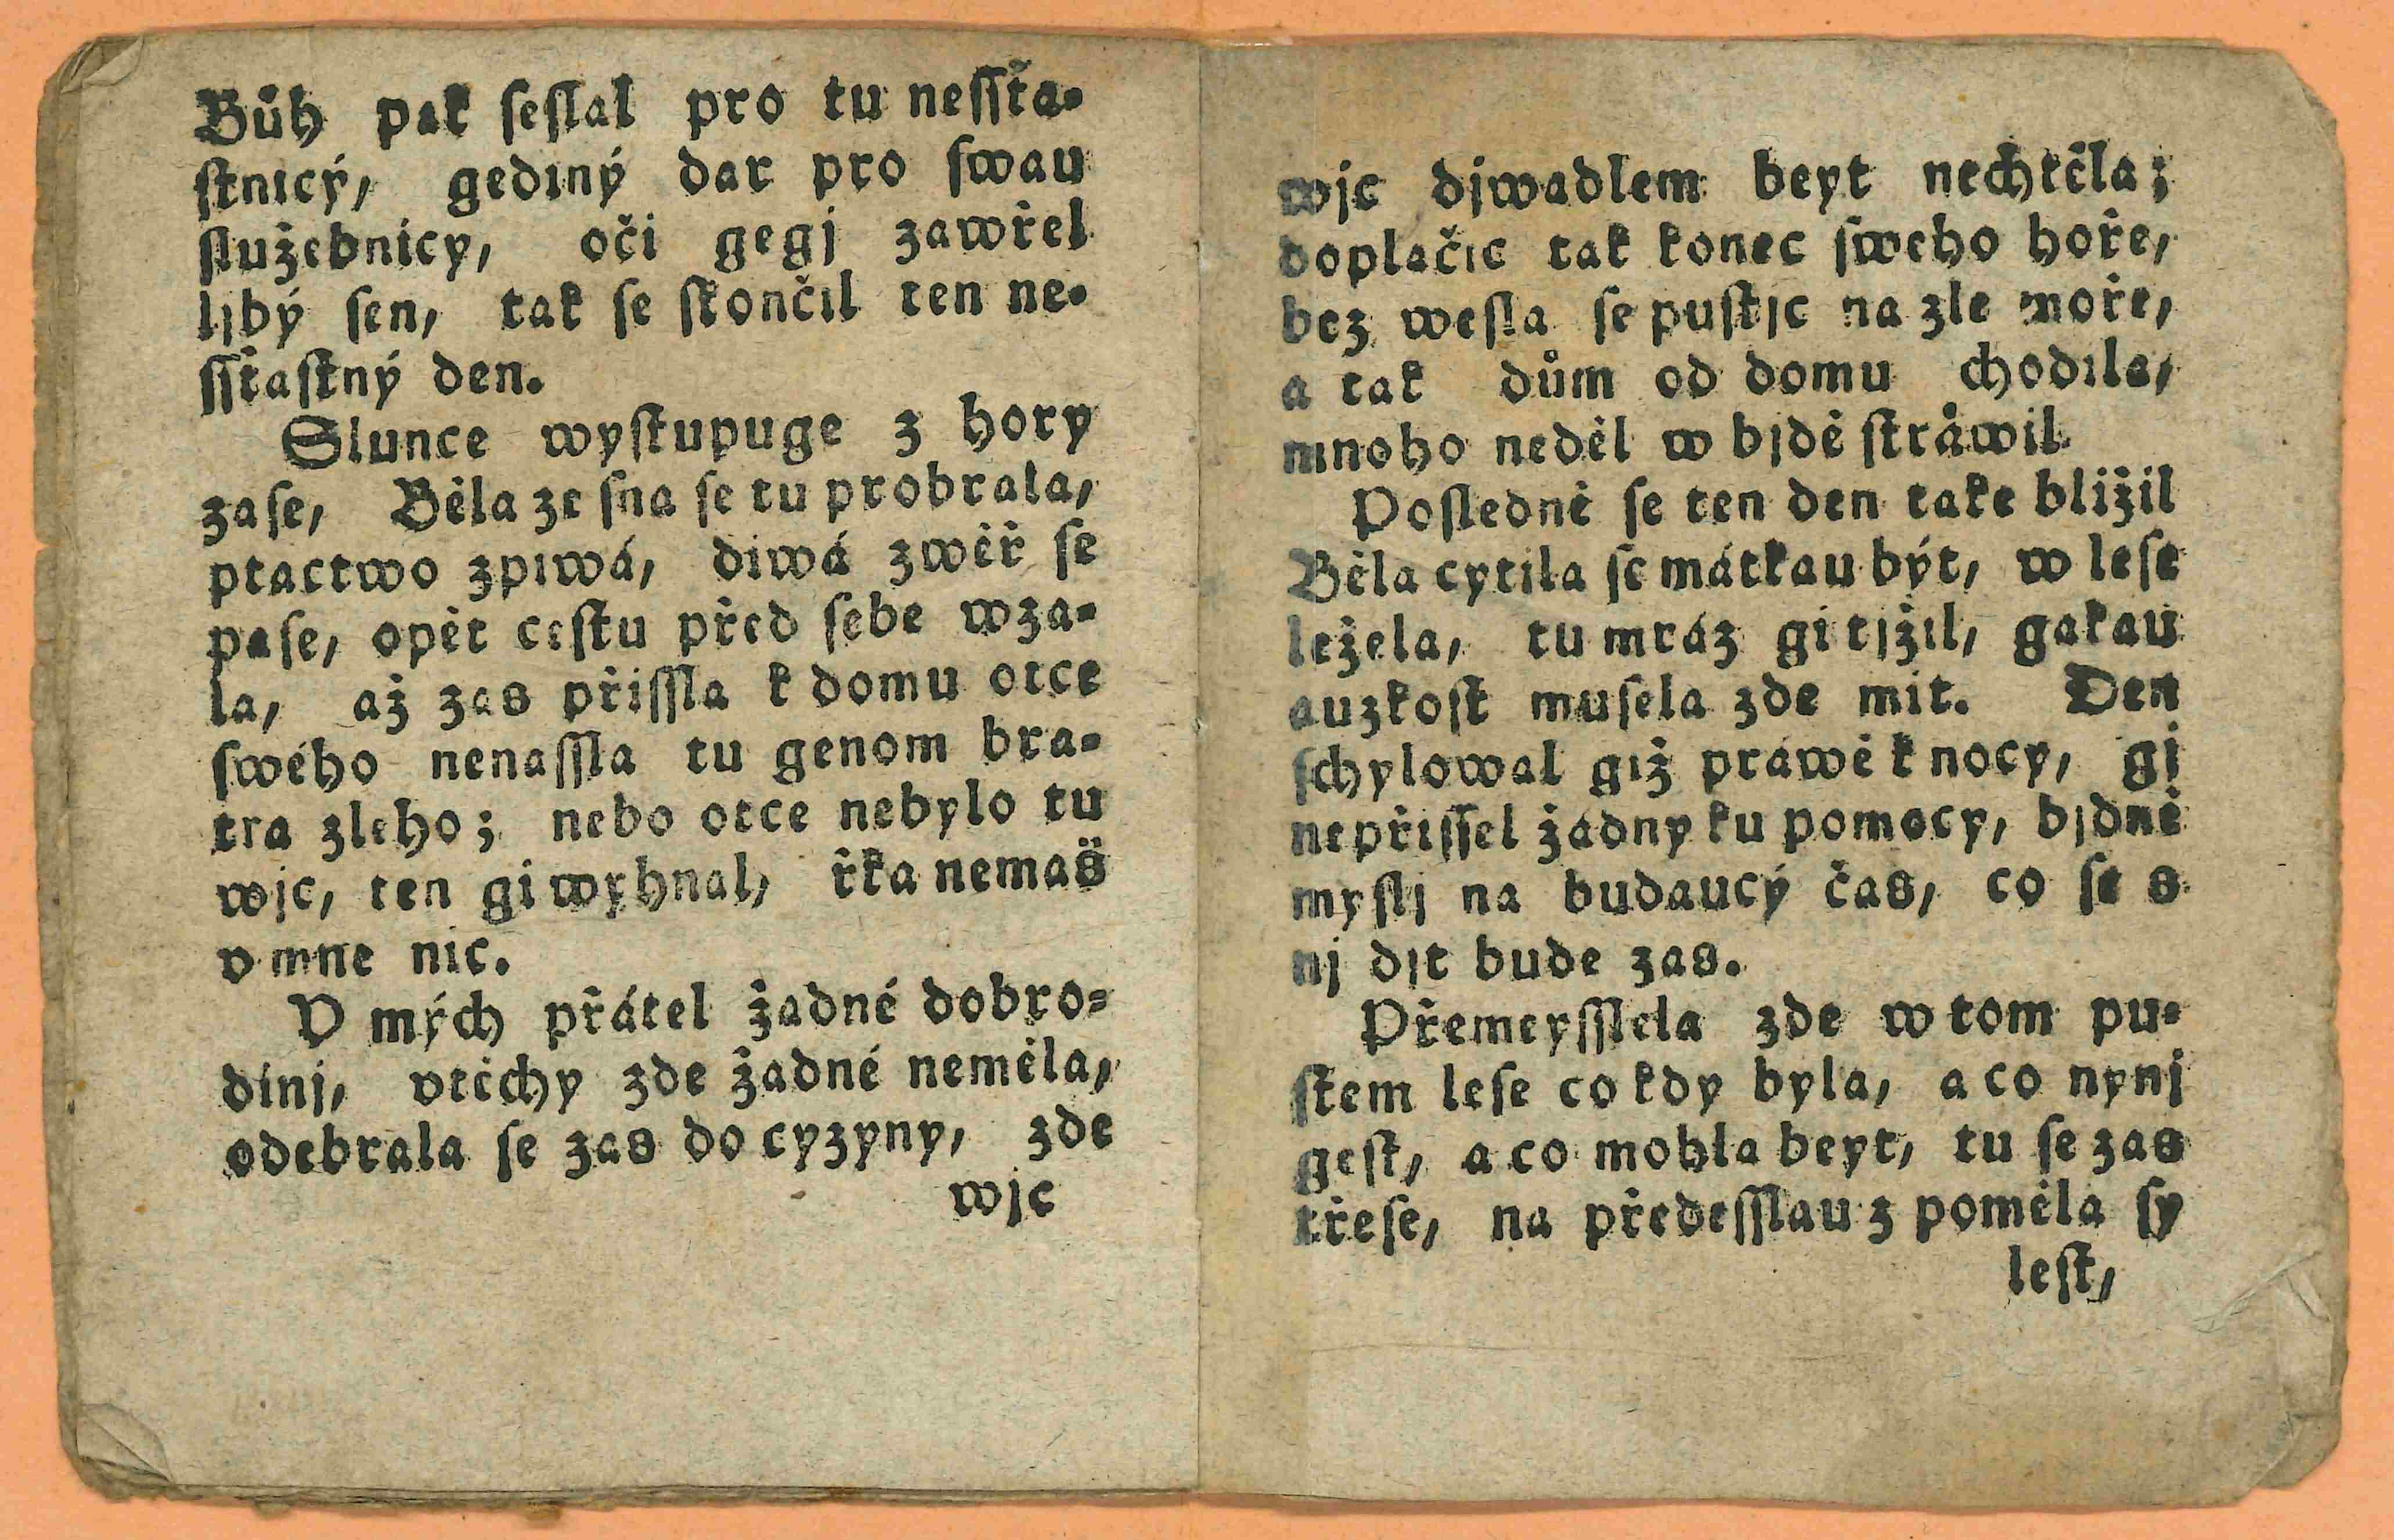 Bůh pak ſeſlal pro tu neſſťa-
ſtnicý, gediný dar pro ſwau
ſlužebnicy, oči gegj zawřel
ljbý ſen, tak ſe ſkončil ten ne-
ſſťaſtný den.
Slunce wyſtupuge z hory
zaſe, Běla ze ſna ſe tu probrala,
ptactwo zpiwá, diwá zwěř ſe
paſe, opět ceſtu před ſebe wza-
la, až zas přiſſla k domu otce
ſwého nenaſſla tu genom bra-
tra zleho; nebo otce nebylo tu
wjc, ten gi wyhnal, řka nemaš
v mne nic.
V mých přátel žadné dobro-
dinj, vtěchy zde žadné neměla,
odebrala ſe zas do cyzyny, zde
wjc
wjc djwadlem beyt nechtěla;
doplačic tak konec ſweho hoře,
bez weſla ſe puſtjc na zle moře,
a tak dům od domu chodila,
mnoho neděl w bjdě ſtråwil
Poſledně ſe ten den take bližil
Běla cytila ſe mátkau být, w leſe
ležela, tu mráz gi tjžil, gakau
auzkoſt muſela zde mit. Den
ſchylowal giž práwě k nocy, gj
nepřiſſel žádny ku pomocy, bjdně
myſlj na budaucý čas, co ſe s
nj djt bude zas.
Přemeyſſlela zde w tom pu-
ſtem leſe co kdy byla, a co nynj
geſt, a co mohla beyt, tu ſe zas
třeſe, na předeſſlau z poměla ſy
leſt,